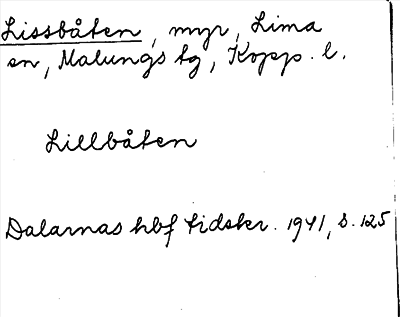 Lissbåten, myr, Lima
sn, Malungs tg, Kopp. l.
Lillbåten
Dalarnas hbf tidskr. 1941, s. 125